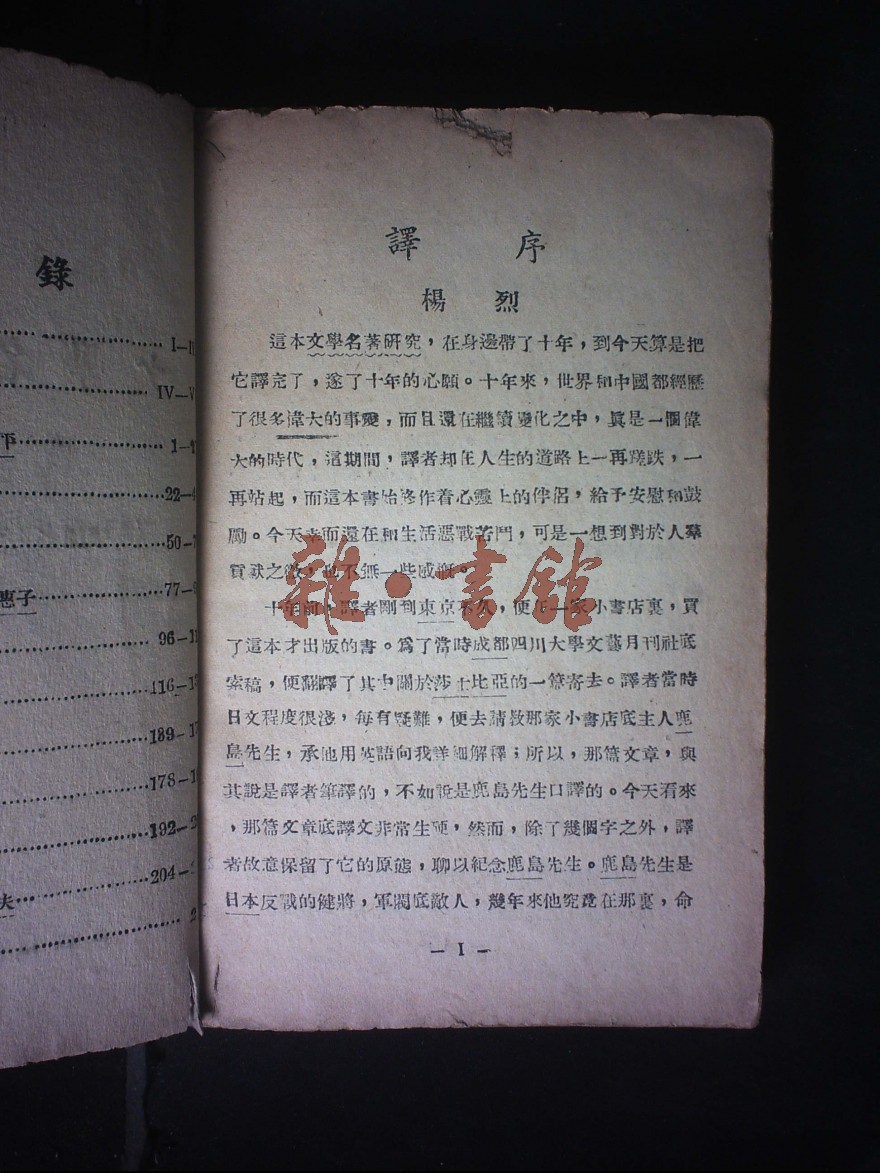 錄
I—II
IV—V
平 1—
22—
50—
惠子 77—
96—11
116—1
139—1
178—1
192—2
夫 204—
2
譯 序
楊 烈
這本文學名著研究，在身邊帶了十年，到今天算是把
它譯完了，遂了十年的心願。十年來，世界和中國都經歷
了很多偉大的事變，而且還在繼續變化之中，眞是一個偉
大的時代，這期間，譯者却在人生的道路上一再蹉跌，一
再站起，而這本書始終作着心靈上的伴侶，給予安慰和鼓
勵。今天幸而還在和生活惡戰苦鬥，可是一想到對於人羣
貢獻之微，也不無一些感慨。
十年前，譯者剛到東京不久，便在一家小書店裏，買
了這本才出版的書。爲了當時成都四川大學文藝月刊社底
索稿，便翻譯了其中關於莎士比亞的一篇寄去。譯者當時
日文程度很淺，每有疑難，便去請敎那家小書店底主人鹿
島先生，承他用英語向我詳細解釋；所以，那篇文章，與
其說是譯者筆譯的，不如說是鹿島先生口譯的。今天看來
，那篇文章底譯文非常生硬，然而，除了幾個字之外，譯
者故意保留了它的原態，聊以紀念鹿島先生。鹿島先生是
日本反戰的健將，軍閥底敵人，幾年來他究竟在那裏，命
— I —
雜·書館